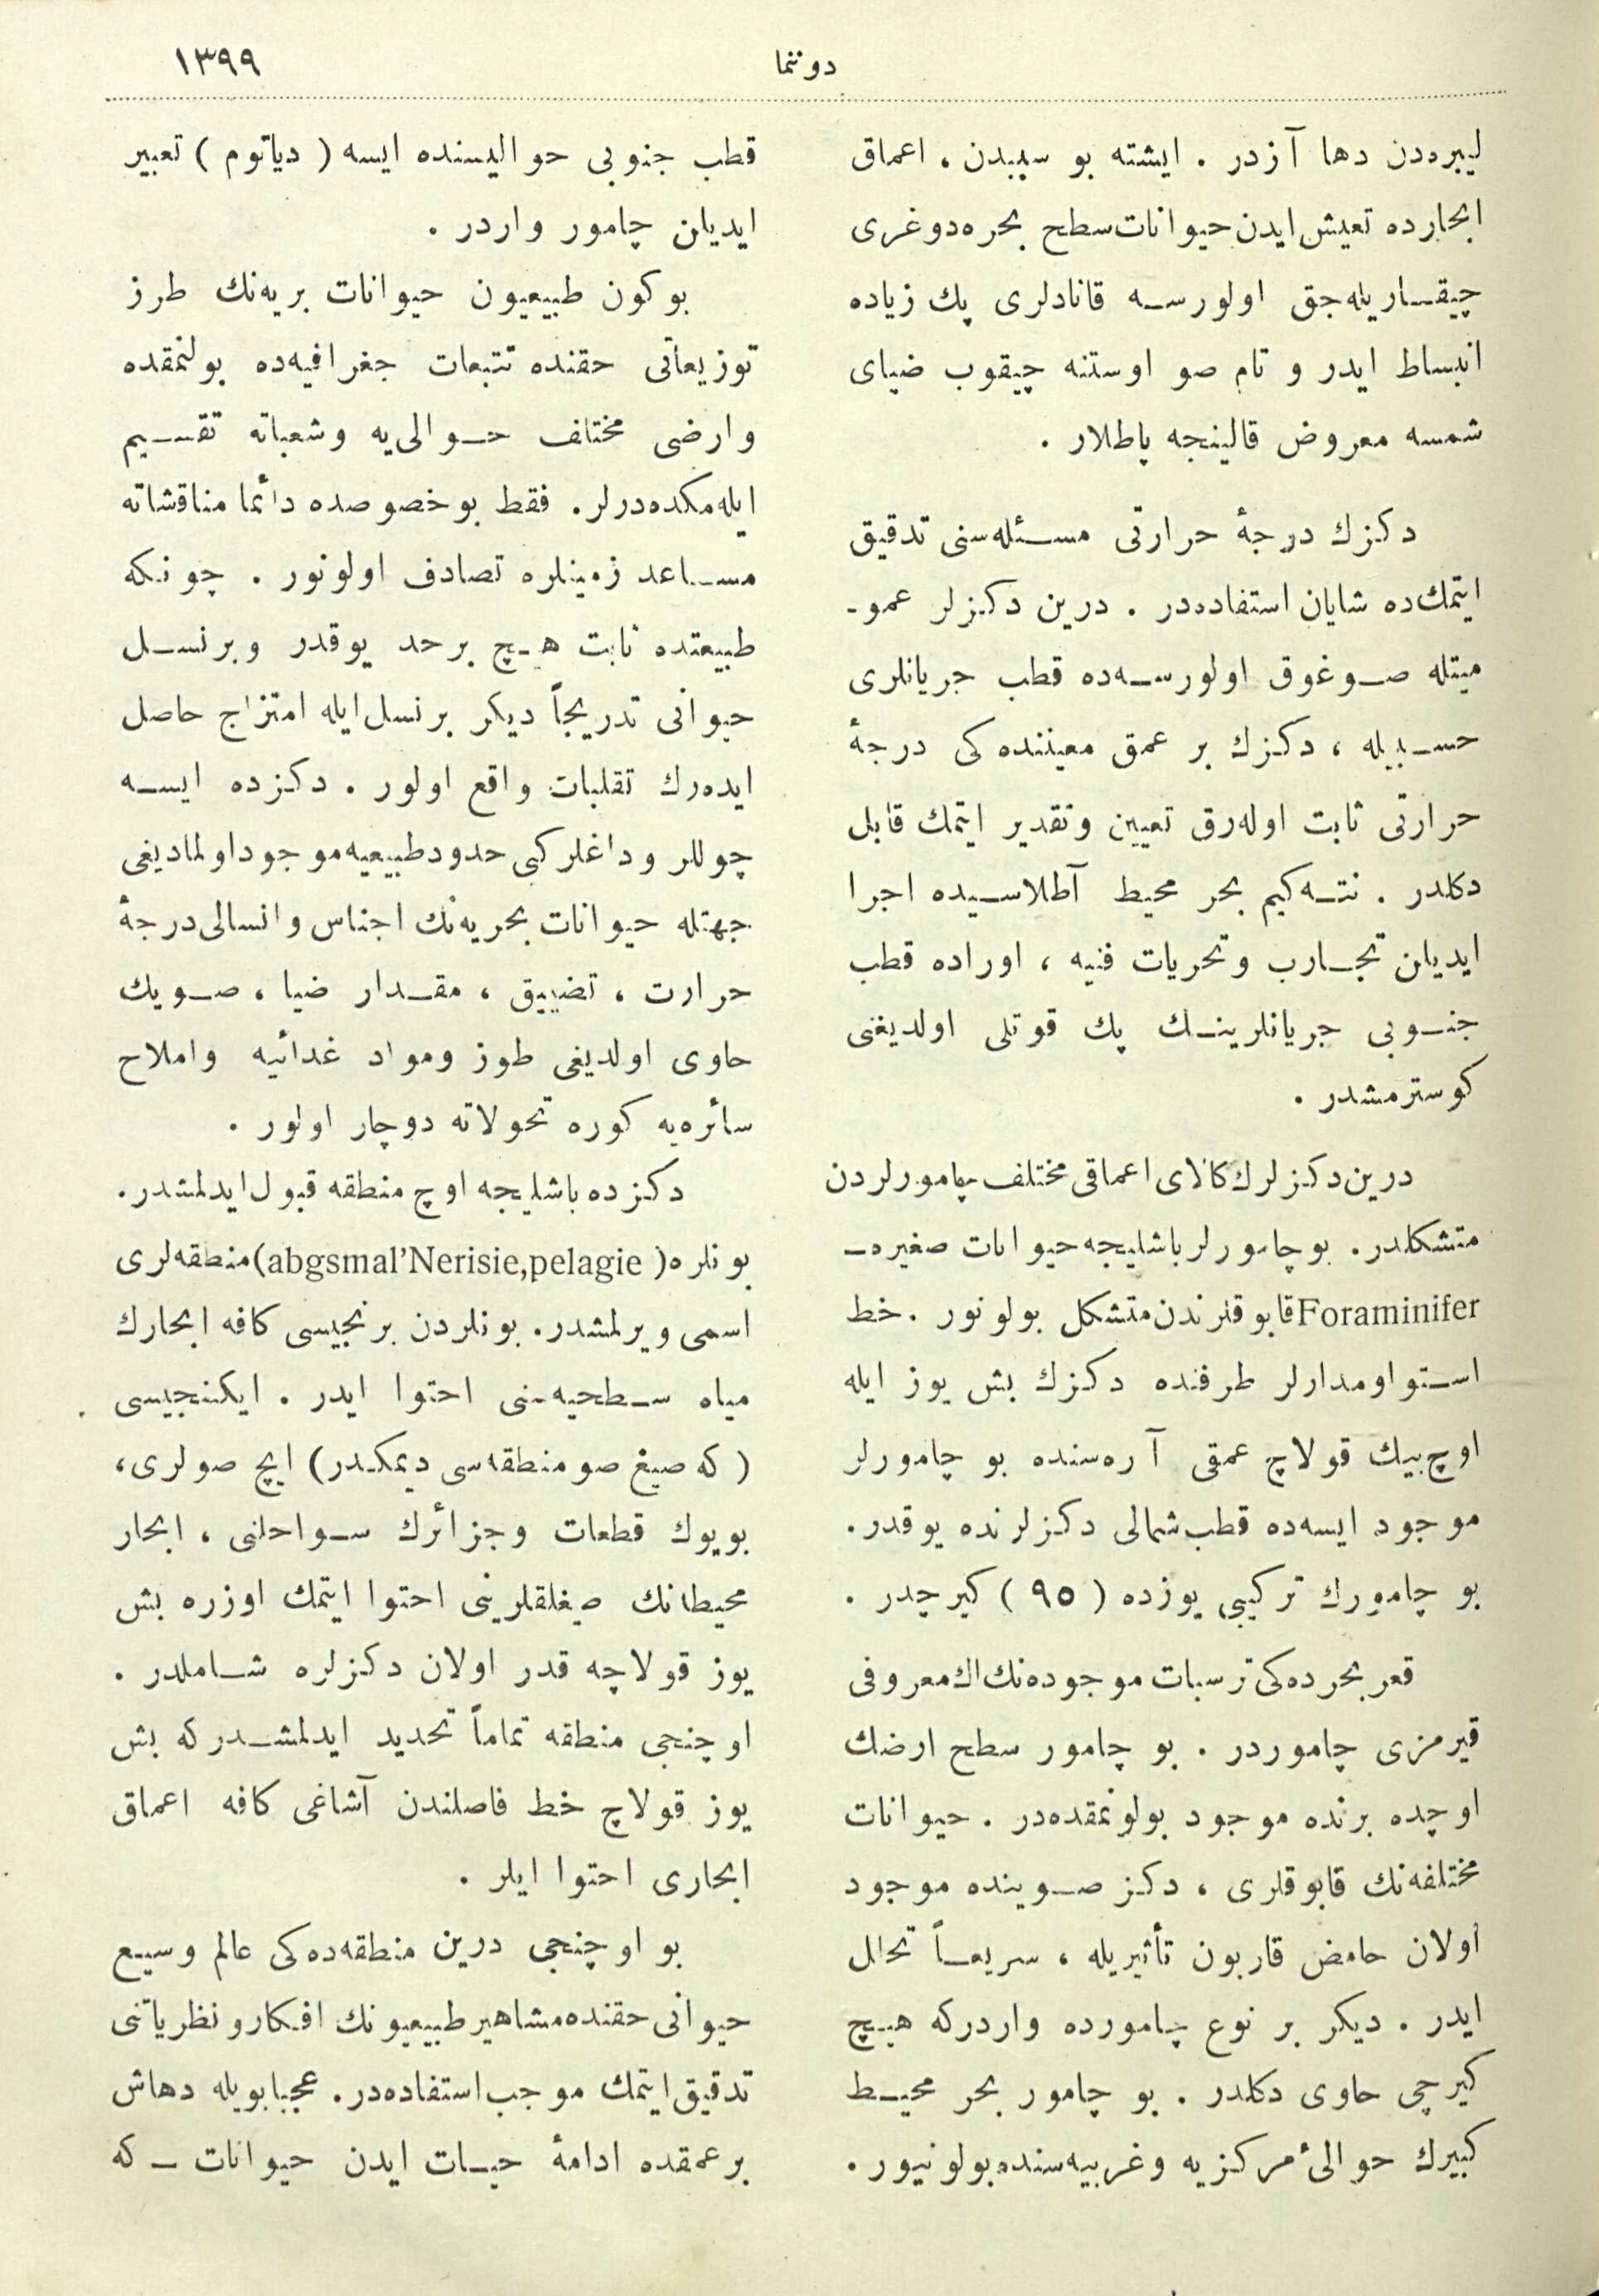 دوننما
١٣٩٩
ليبره‌دن دها آزدر . ايشته بو سببدن ، اعماق
ابحارده تعيش ايدن حيوانات سطح بحره دوغری
چيقاريله‌جق اولورسه قانادلری پك زياده
انبساط ايدر و تام صو اوستنه چيقوب ضيای
شمسه معروض قالينجه پاطلار .
دكزك درجهٔ حرارتی مسئله‌سنی تدقيق
ايتمك‌ده شايان استفاده‌در . درين دكزلر عمو-
ميتله صوغوق اولورسه‌ده قطب جريانلری
حسبيله ، دكزك بر عمق معيننده كی درجهٔ
حرارتی ثابت اوله‌رق تعيين وتقدير ايتمك قابل
دكلدر . نته‌كيم بحر محيط آطلاسيده اجرا
ايديلن تجارب وتحريات فنيه ، اوراده قطب
جنوبی جريانلرينك پك قوتلی اولديغنی
كوسترمشدر .
درين دكزلرك كالای اعماقی مختلف چامورلردن
متشكلدر. بوچامورلر باشليجه حيوانات صغيره-
Foraminifer قابوقلرندن متشكل بولونور . خط
استواومدارلر طرفنده دكزك بش يوز ايله
اوچ‌بيك قولاچ عمقی آره‌سنده بو چامورلر
موجود ايسه‌ده قطب شمالی دكزلرنده يوقدر.
بو چامورك تركيبی يوزده ( ٩٥ ) كيرچدر .
قعر بحرده‌كی ترسبات موجوده‌نك اك معروفی
قيرمزی چاموردر . بو چامور سطح ارضك
اوچده برنده موجود بولونمقده‌در . حيوانات
مختلفه‌نك قابوقلری ، دكز صوينده موجود
اولان حامض قاربون تأثيريله ، سريعاً تحلل
ايدر . ديكر بر نوع چاموردە واردركه هيچ
كيرچی حاوی دكلدر . بو چامور بحر محيط
كبيرك حوالیٔ مركزيه وغربيه‌سنده بولونيور .
قطب جنوبی حواليسنده ايسه ( دياتوم ) تعبير
ايديلن چامور واردر .
بوكون طبيعيون حيوانات بريه‌نك طرز
توزيعاتی حقنده تتبعات جغرافيه‌ده بولنمقده
وارضی مختلف حوالی‌يه وشعباته تقسيم
ايله‌مكده‌درلر. فقط بو خصوصده دائما مناقشاته
مساعد زمينلره تصادف اولونور . چونكه
طبيعتده ثابت هيچ برحد يوقدر وبرنسل
حيوانی تدريجاً ديكر برنسل ايله امتزاج حاصل
ايده‌رك تقلبات واقع اولور . دكزده ايسه
چوللر وداغلر كبی حدود طبيعيه موجود اولماديغی
جهتله حيوانات بحريه‌نك اجناس وانسالی درجهٔ
حرارت ، تضييق ، مقدار ضيا ، صويك
حاوی اولديغی طوز ومواد غدائيه واملاح
سائره‌يه كوره تحولاته دوچار اولور .
دكزده باشليجه اوچ منطقه قبول ايدلمشدر.
بونلره( abgsmal’Nerisie,pelagie)منطقه‌لری
اسمی ويرلمشدر. بونلردن برنجيسی كافه ابحارك
مياه سطحيه‌سنی احتوا ايدر . ايكنجيسی
( كه صيغ صو منطقه‌سی ديمكدر) ايچ صولری،
بويوك قطعات وجزائرك سواحلنی ، ابحار
محيطه‌نك صيغلقلرينی احتوا ايتمك اوزره بش
يوز قولاچه قدر اولان دكزلره شاملدر .
اوچنجی منطقه تماماً تحديد ايدلمشدركه بش
يوز قولاچ خط فاصلندن آشاغی كافه اعماق
ابحاری احتوا ايلر .
بو اوچنجی درين منطقه‌ده‌كی عالم وسيع
حيوانی حقنده مشاهير طبيعيونك افكارو نظرياتنی
تدقيق ايتمك موجب استفاده‌در. عجبا بويله دهاش
برعمقده ادامهٔ حيات ايدن حيوانات ـ كه